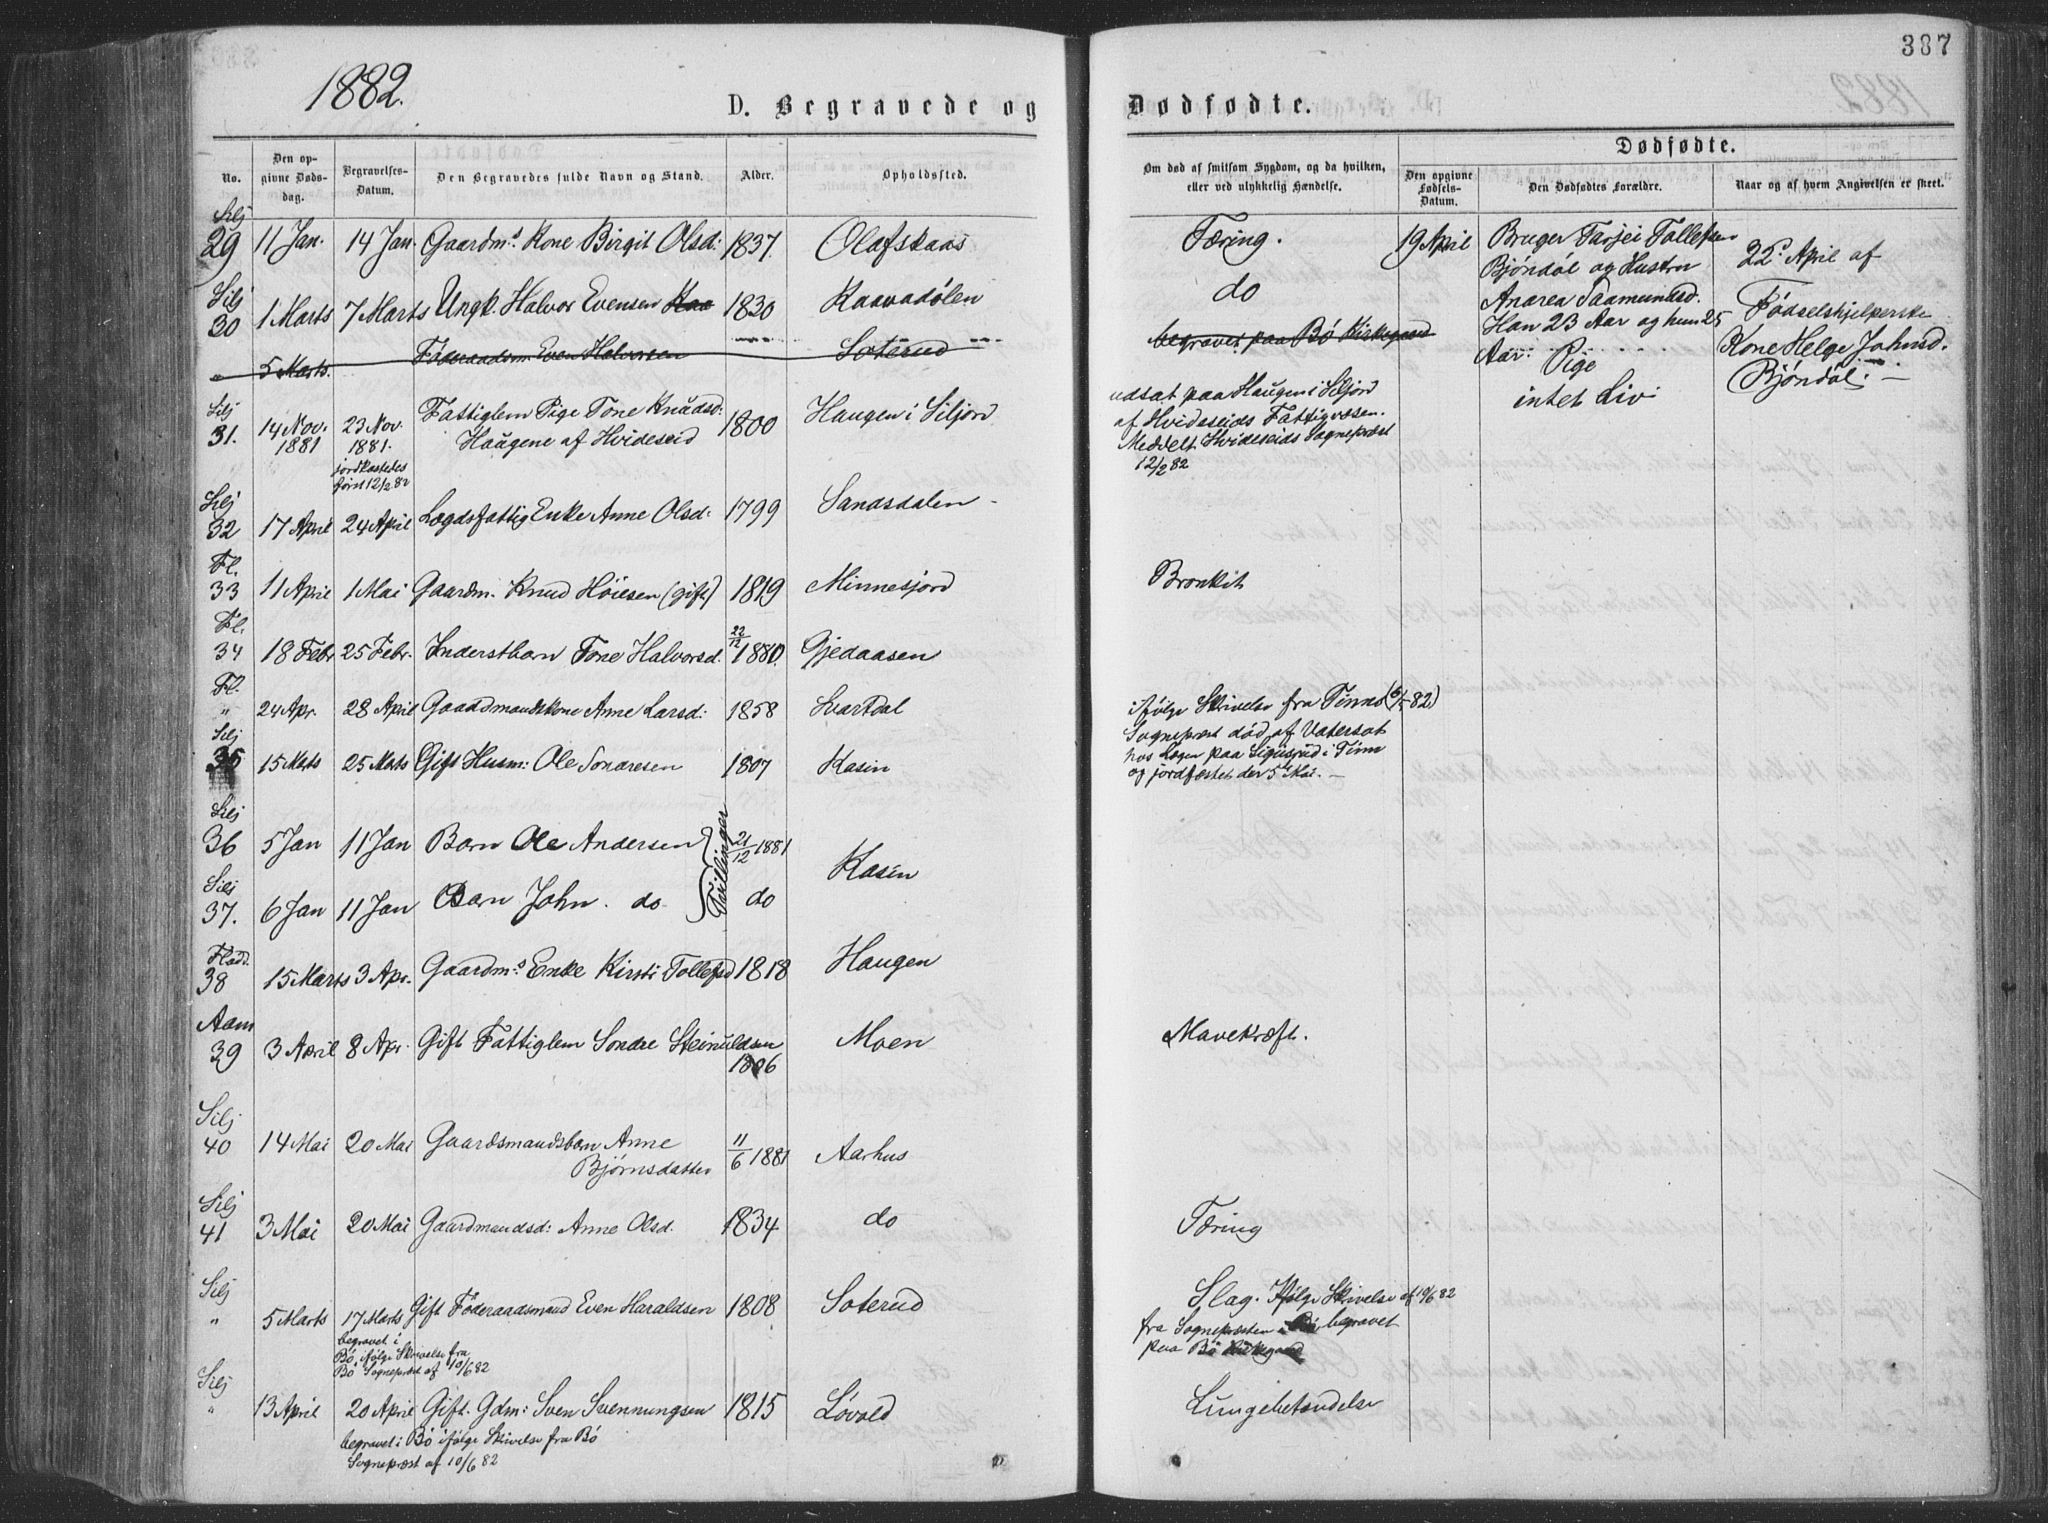 387
1882.
D. Begravede og Dødfødte.
No.
Den opgivne Dødsdag.
Begravelses-Datum.
Den Begravedes fulde Navn og Stand.
Alder.
Opholdssted.
Om død af smitsom Sygdom, og da hvilken, eller ved ulykkelig Hændelse.
Dødfødte.
Den opgivne Fødsels-Datum.
Den Dødfødtes Forældre.
Naar og af hvem Angivelsen er skeet.
Silj
29 11 Jan. 14 Jan. Gaardm.s Kone Birgit Olsd: 1837. Olafskaas Tæring.
Silj
30 1 Marts 7 Marts Ungk. Halvor Evensen Kaa 1830 Kaavadølen do
" 5 Marts. Føderaadsm. Even Halvorsen Soterud begravet paa Bø Kirkegaard
19 April Bruger Tarjei Tollefsen
Bjøndøl og Hustru
Anarea Saamundsd.
Han 23 Aar og hun 25
Aar: Pige
intet Liv
22d April af
Fødselshjelperske
Kone Helge Johnsd.
Bjøndøl. —
Silj
31. 14 Nov. 1881 23 Nov. 1881. Fattiglem Pige Tone Knudsd: 1800 Haugen i Siljord
Haugene af Hvideseid
jordkastedes
først 12/2 82
udsat paa Haugen i Siljord
af Hvideseids Fattigvæsen.
Meddelt Hvideseids Sognepræst
12/2 82
Silj
32 17 April 24 April Lægdsfattig Enke Anne Olsd: 1799 Sandsdalen
Fl.
33 11 April 1 Mai Gaardm. Knud Høiesen (gift) 1819 Minnesjord Bronkit
Fl.
34 18 Febr 25 Febr. Inderstbarn Tone Halvorsd. 22/12 1880. Gjedaasen
Fl.
" 24 Apr. 28 April Gaardmandskone Anne Larsd: 1858 Svartdal
ifølge Skrivelse fra Tinns (6/5 82)
Sognepræst død af Vatersot
hos Lægen paa Sigursrud i Tinn
og jordfæstet der 5te Mai. —
Silj
35 15 Mats 25 Mats Gift Husm: Ole Sondresen 1807 Kasin
Silj
36 5 Jan 11 Jan Barn Ole Andersen 21/12 1881 Kasin
Tvillinger
Silj
37. 6 Jan 11 Jan Barn John. do do
Fladd.
38 15 Marts 3 Apr. Gaardm.s Enke Kirsti Tollefsd 1818 Haugen
Aam
39 3 April 8 Apr. Gift Fattiglem Sondre Steinuldsen 1806 Moen Mavekræft.
Silj
40 14 Mai 20 Mai Gaardsmandsbarn Anne
Bjørnsdatter 11/6 1881 Aarhus
Silj
41 3 Mai 20 Mai Gaardmandsd: Anne Olsd. 1834 do Tæring
Silj
" 5 Marts 17 Marts Gift Føderaadsmand Even Haraldsen 1808 Soterud
begravet i
Bø, ifølge Skrivelse fra
Bø Sognepræst af 10/6 82
Slag. Ifølge Skrivelse af 10/6 82
fra Sognepræsten i Bø, begravet
paa Bø Kirkegaard
Silj
" 13 April 20 April Gift. Gdm: Sven Svennungsen 1815 Løvold Lungebetændelse
begravet i Bø ifølge Skrivelse fra Bø
Sognepræst af 10/6 82